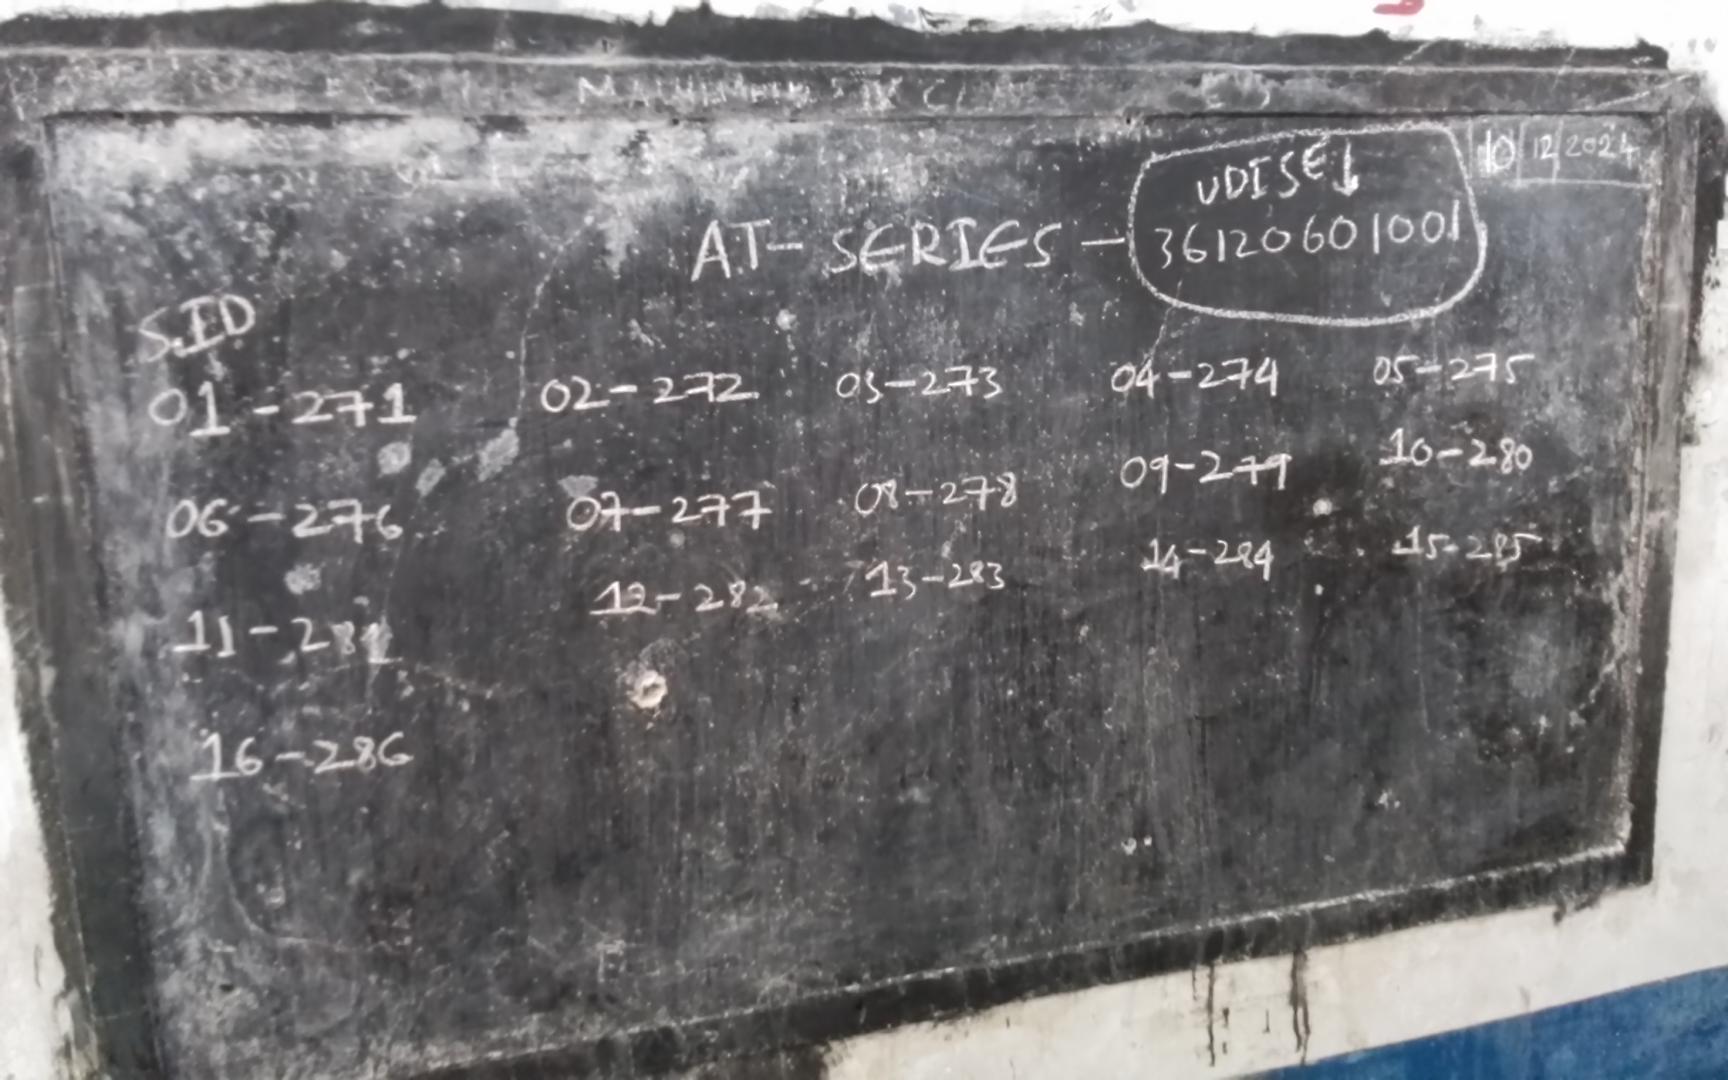 10/12/2024
UDISE↓
AT-SERIES-36120601001
S.ID
01-271 02-272 03-273 04-274 05-275
06-276 07-277 08-278 09-279 10-280
11-281 12-282 13-283 14-284 15-285
16-286